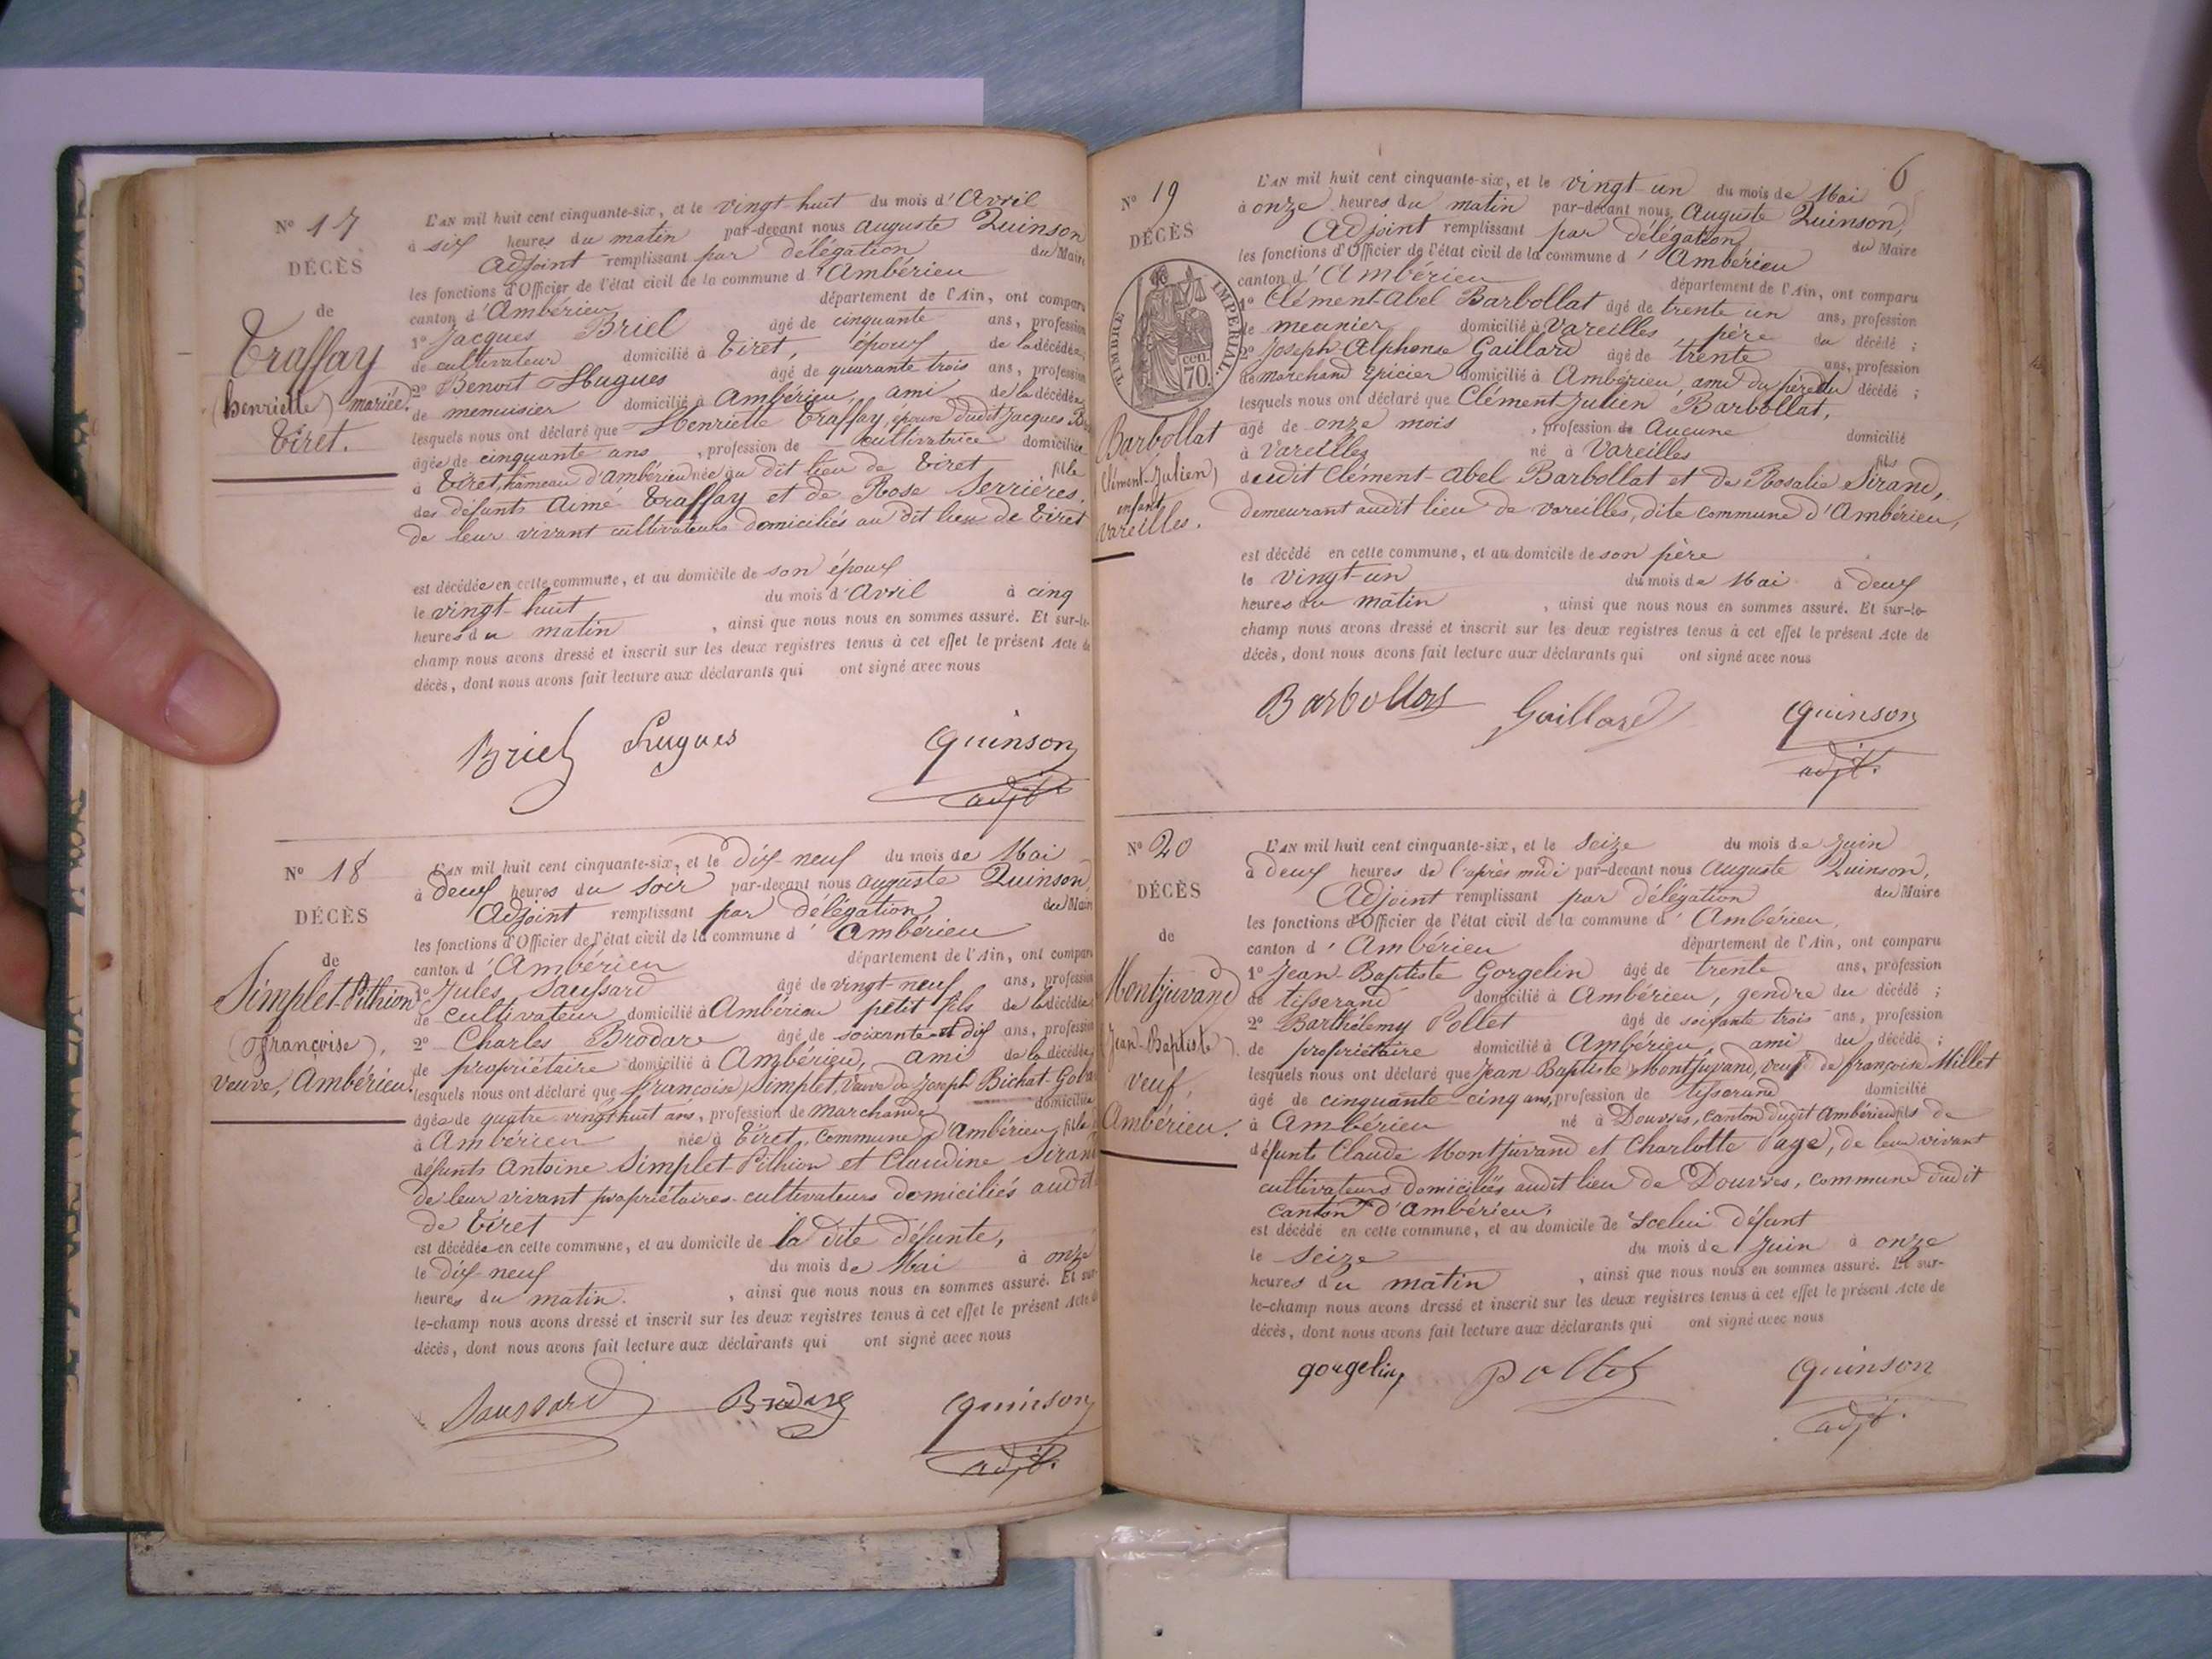 N° 17
DÉCÈS
de
Traffay
(henriette) mariée.
Tiret.
L'AN mil huit cent cinquante-six, et le vingt-huit du mois d'Avril
à six heures du matin par-devant nous auguste Quinson
Adjoint remplissant par délégation du Maire
les fonctions d'Officier de l'état civil de la commune d'Ambérieu
canton d'Ambérieu département de l'Ain, ont comparu
1° Jacques Briel âgé de cinquante ans, profession
de cultivateur domicilié à Tiret, époux de la décédée;
2° Benoit Hugues âgé de quarante trois ans, profession
de menuisier domicilié à Ambérieu, ami de la décédée;
lesquels nous ont déclaré que Henriette Traffay, épouse dudit Jacques
âgée de cinquante ans, profession de cultivatrice domiciliée
à Tiret, hameau d'Ambérieu née au dit lieu de Tiret fille
des défunts Aimé Traffay et de Rose Serrières,
de leur vivant cultivateurs domiciliés au dit lieu de Tiret
est décédée en cette commune, et au domicile de son époux
le vingt-huit du mois d'Avril à cinq
heures du matin, ainsi que nous nous en sommes assuré. Et sur-le-
champ nous avons dressé et inscrit sur les deux registres tenus à cet effet le présent Acte de
décès, dont nous avons fait lecture aux déclarants qui ont signé avec nous
Briel Hugues Quinson
adjt.
N° 18
DÉCÈS
de
Simplet-Pithion
(françoise),
veuve, Ambérieu.
L'AN mil huit cent cinquante-six, et le dix-neuf du mois de Mai
à deux heures du soir par-devant nous auguste Quinson,
Adjoint remplissant par délégation du Maire
les fonctions d'Officier de l'état civil de la commune d'Ambérieu
canton d'Ambérieu département de l'Ain, ont comparu
1° Jules Saussard âgé de vingt-neuf ans, profession
de cultivateur domicilié à Ambérieu petit fils de la décédée
2° Charles Brodare âgé de soixante et dix ans, profession
de propriétaire domicilié à Ambérieu, ami de la décédée
lesquels nous ont déclaré que françoise Simplet, Veuve de Joseph Bichat-
âgée de quatre vingt huit ans, profession de marchande domiciliée
à Ambérieu née à Tiret, commune d'Ambérieu, fille
défunts Antoine Simplet-Pithion et Claudine Sirand
de leur vivant propriétaires-cultivateurs domiciliés audit
de Tiret
est décédée en cette commune, et au domicile de la dite défunte,
le dix-neuf du mois de Mai à onze
heures du matin., ainsi que nous nous en sommes assuré. Et sur-
le-champ nous avons dressé et inscrit sur les deux registres tenus à cet effet le présent Acte de
décès, dont nous avons fait lecture aux déclarants qui ont signé avec nous
Saussard Brodare Quinson
adjt.
6
N° 19
DÉCÈS
TIMBRE IMPÉRIAL.
cen.
70.
Barbollat
(Clément-Julien)
enfant,
Vareilles.
L'AN mil huit cent cinquante-six, et le vingt-un du mois de Mai
à onze heures du matin par-devant nous Auguste Quinson,
Adjoint remplissant par délégation du Maire
les fonctions d'Officier de l'état civil de la commune d'Ambérieu
canton d'Ambérieu département de l'Ain, ont comparu
1° Clément-Abel Barbollat âgé de trente un ans, profession
de meunier domicilié à Vareilles, père du décédé;
2° Joseph-Alphonse Gaillard âgé de trente ans, profession
de marchand épicier domicilié à Ambérieu, ami du père du décédé;
lesquels nous ont déclaré que Clément Julien Barbollat,
âgé de onze mois, profession de Aucune domicilié
à Vareilles né à Vareilles fils
dudit Clément-Abel Barbollat et de Rosalie Sirand,
demeurant audit lieu de vareilles, dite commune d'Ambérieu,
est décédé en cette commune, et au domicile de son père
le vingt-un du mois de Mai à deux
heures du matin, ainsi que nous nous en sommes assuré. Et sur-le-
champ nous avons dressé et inscrit sur les deux registres tenus à cet effet le présent Acte de
décès, dont nous avons fait lecture aux déclarants qui ont signé avec nous
Barbollat Gaillard Quinson
adjt.
N° 20
DÉCÈS
de
Montjuvand
(Jean-Baptiste),
veuf,
Ambérieu.
L'AN mil huit cent cinquante-six, et le Seize du mois de Juin
à deux heures de l'après midi par-devant nous Auguste Quinson,
Adjoint remplissant par délégation du Maire
les fonctions d'Officier de l'état civil de la commune d'Ambérieu,
canton d'Ambérieu département de l'Ain, ont comparu
1° Jean-Baptiste Gorgelin âgé de trente ans, profession
de tisserand domicilié à Ambérieu, gendre du décédé;
2° Barthélemy Pollet âgé de soixante trois ans, profession
de propriétaire domicilié à Ambérieu, ami du décédé;
lesquels nous ont déclaré que Jean Baptiste Montjuvand, veuf de françoise Millet
âgé de cinquante-cinq ans, profession de tisserand domicilié
à Ambérieu né à Douvres, canton dudit Ambérieu fils de
défunts Claude Montjuvand et Charlotte Page, de leur vivant
cultivateurs domiciliés audit lieu de Douvres, commune dudit
canton d'Ambérieu,
est décédé en cette commune, et au domicile de icelui défunt
le seize du mois de Juin à onze
heures du matin, ainsi que nous nous en sommes assuré. Et sur-
le-champ nous avons dressé et inscrit sur les deux registres tenus à cet effet le présent Acte de
décès, dont nous avons fait lecture aux déclarants qui ont signé avec nous
gorgelin Pollet Quinson
adjt.